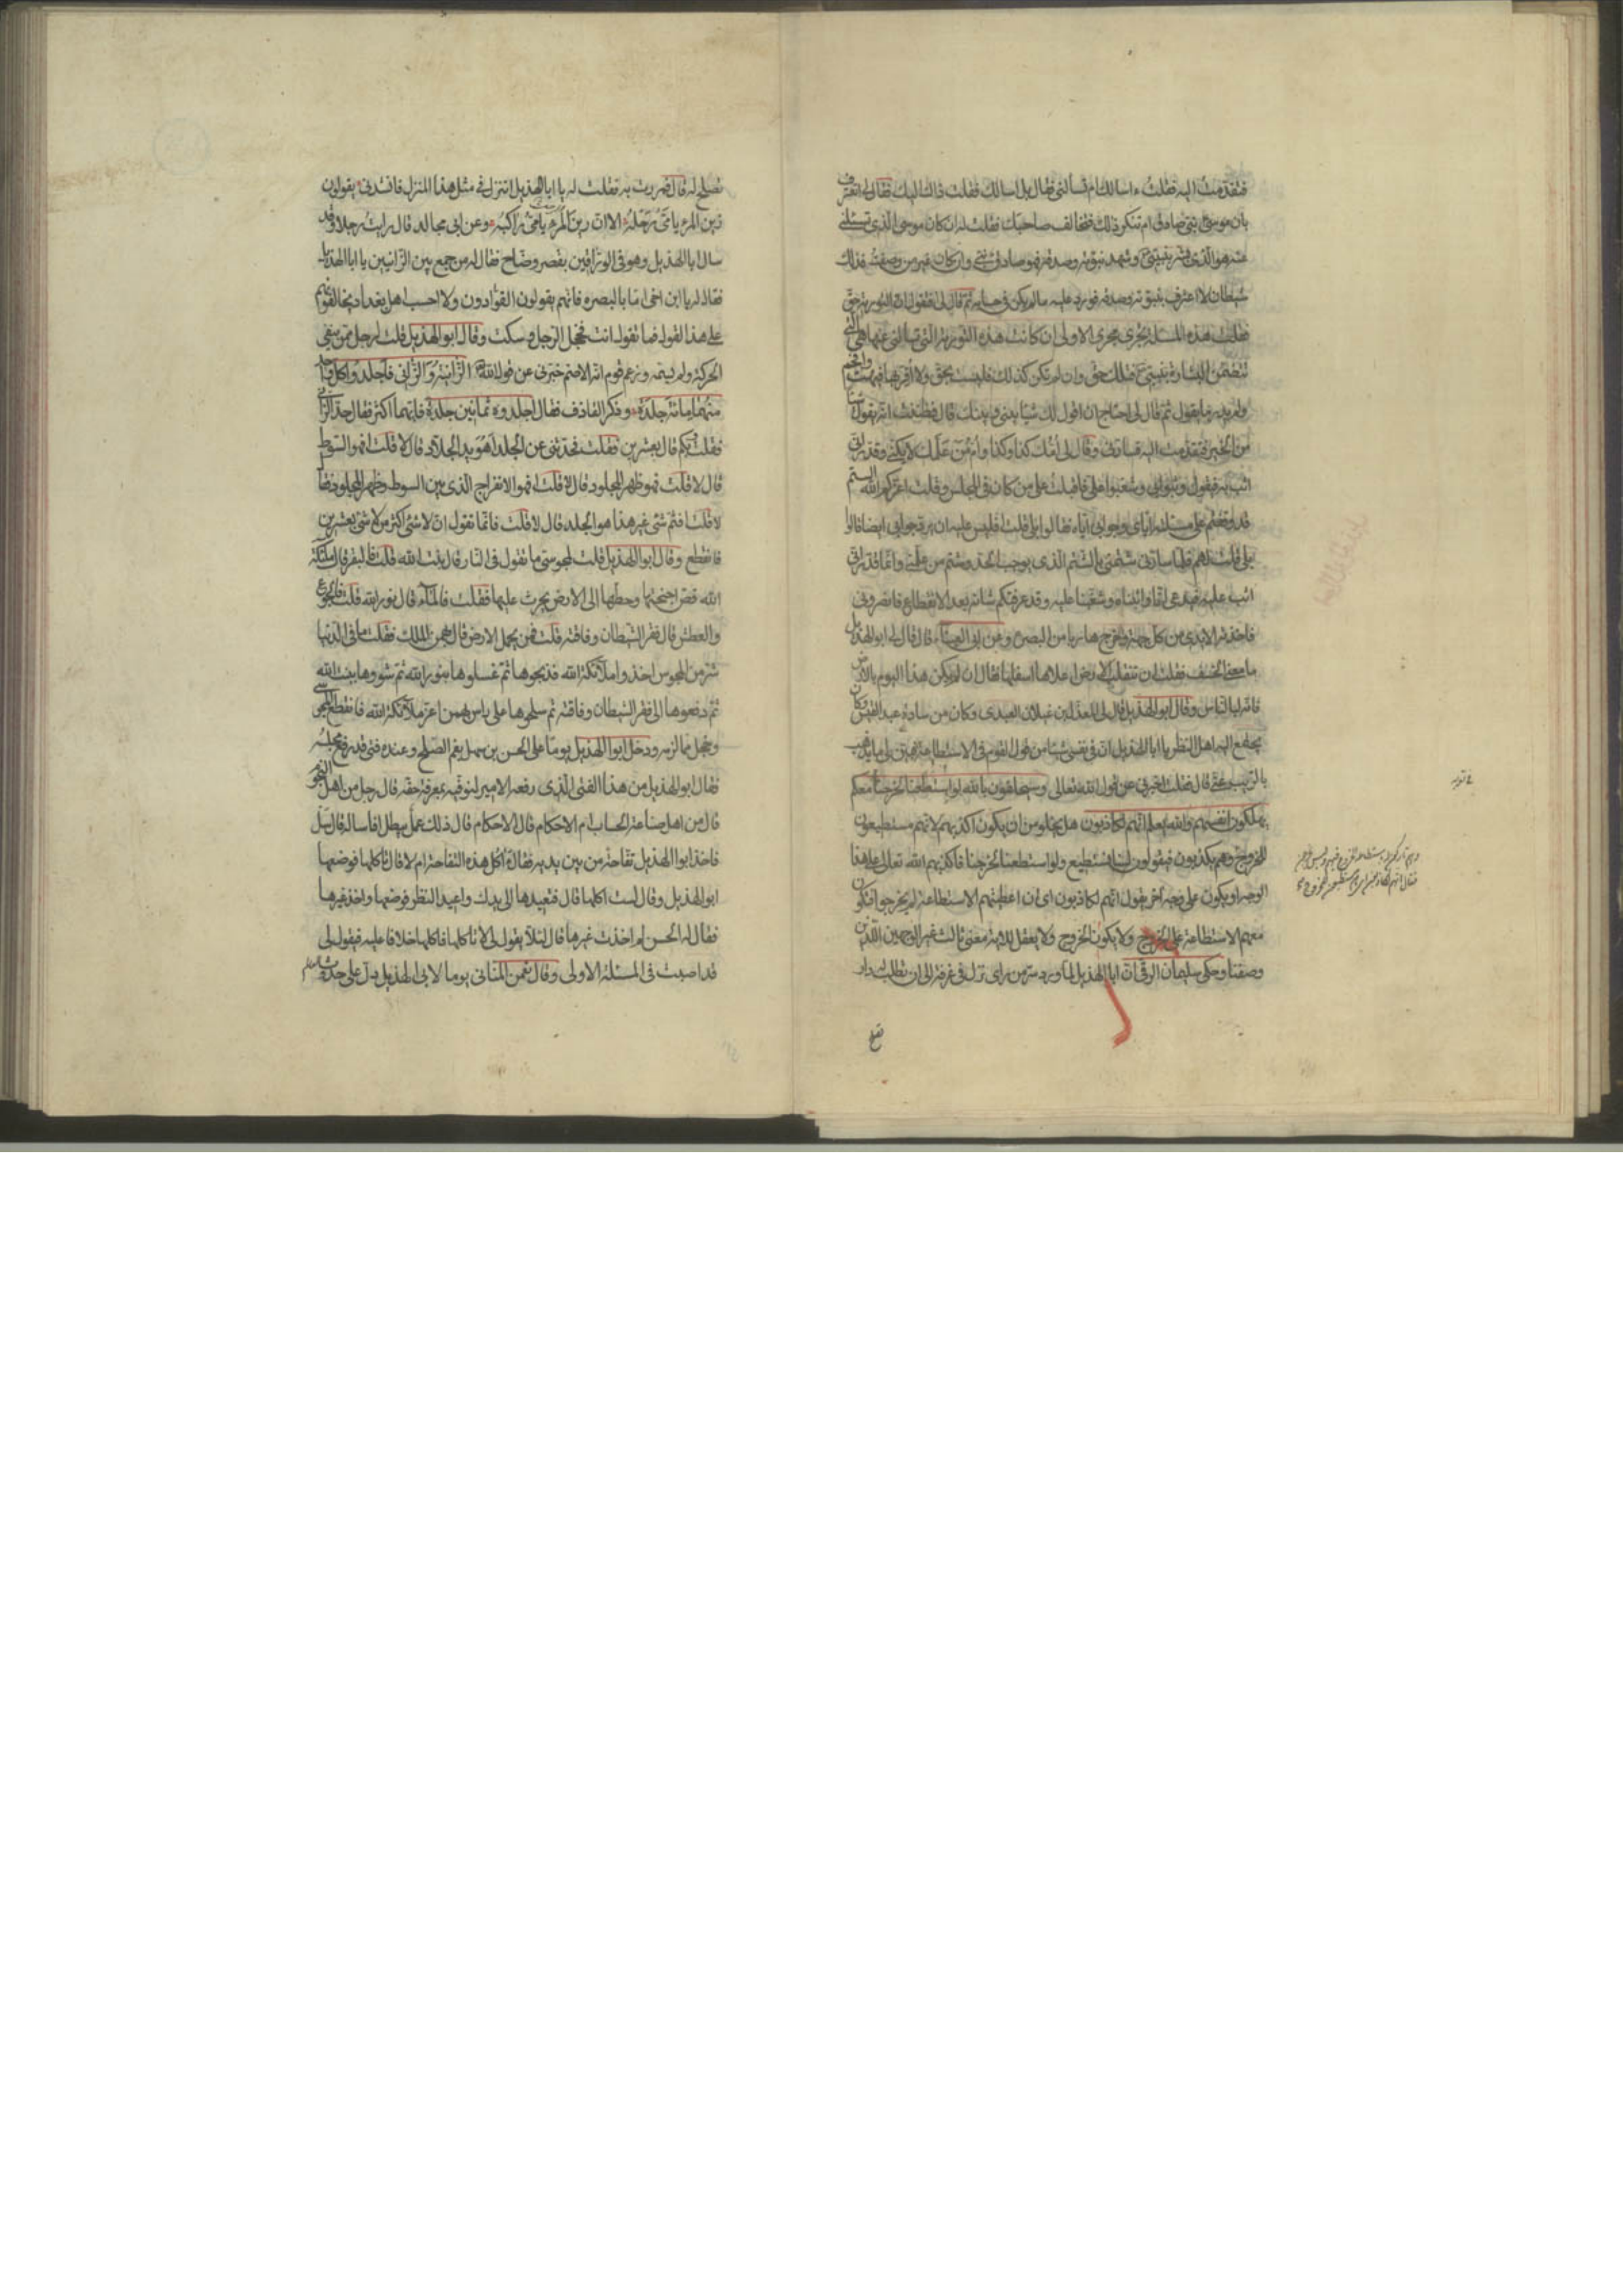 فتقدمت اليه فقلت ءاسالك ام تسألنى فقال بل اسالك فقلت ذاك اليك فقال لى اتعترف
بان موسى نبى صادق ام تنكر ذلك فتخالف صاحبك فقلت له ان كان موسى الذى تسئلنى
عنه هو الذى بشر بنبيى وشهد بنبوته وصدقه فهو صادق نبى وان كان غير من وصفت فذلك
شيطان لا اعترف بنبوته وصدقه فورد عليه مالم يكن فى حسابه ثم قال لى اتقول ان التورية حق
فقلت هذه المسئلة تجرى مجرى الاولى ان كانت هذه التورية التى تسألنى عنها هى التى
تتضمن البشارة بنبيى فتلك حق وان لم تكن كذلك فليست بحق ولا اقر بها فبهت وافحم
ولم يدر ما يقول ثم قال لى احتاج ان اقول لك شيئا بينى وبينك قال فظننت انه يقول شيئا
من الخير فتقدمت اليه فسارنى وقال لى امك كذا وكذا وام من علمك لا يكنى وقدر انى
اثب به فيقول وثبوا بى وشغبوا على فاقبلت على من كان فى المجلس وقلت اعزكم الله الستم
قد وقفتم على مسئلته اياى وجوابى اياه فقالوا بلى قلت افليس عليه ان يرد جوابى ايضا قالوا
بلى قلت لهم فلما سارنى شتمنى بالشتم الذى يوجب الحد وشتم من علمنى وانما قدر انى
اثب عليه فيدعى انا واثبناه وشغبنا عليه وقد عرفتكم شانه بعد الانقطاع فانصرونى
فاخذته الايدى من كل جهة فخرج هاربا من البصرة وعن ابى العيناء قال قال لى ابو الهذيل
ما معنى الخسف فقلت ان تنقلب الارض اعلاها اسفلها فقال ان لم يكن هذا اليوم بالارض
فانه لبالناس وقال ابو الهذيل قال لى المعذل بن غيلان العبدى وكان من سادة عبد القيس وكان
يجتمع اليه اهل النظر يا ابا الهذيل ان فى نفسى شيئا من قول القوم فى الاستطاعة فبين لى ما يذهب
بالريب عنى قال فقلت اخبرنى عن قول الله تعالى وسيحلفون بالله لو استطعنا لخرجنا معكم
يهلكون انفسهم والله يعلم انهم لكاذبون هل يخلو من ان يكون اكذبهم لانهم مستطيعون
للخروج وهم يكذبون فيقولون لسنا نستطيع ولو استطعنا لخرجنا فاكذبهم الله تعالى على هذا
الوجه او يكون على وجه آخر يقول انهم لكاذبون اى ان اعطيتهم الاستطاعة لم يخرجوا فتكون
معهم الاستطاعة على الخروج ولا يكون الخروج ولا يعقل للاية معنى ثالث غير الوجهين اللذين
وصفنا وحكى سليمان الرقى ان ابا الهذيل لما ورد سر من راى نزل فى غرفة الى ان تطلب له دار
تصلح له قال فمررت به فقلت له يا ابا الهذيل اتنزل فى مثل هذا المنزل فانشدنى يقولون
زين المرء يا مى رحله الا ان زين المرء يا مى راكبه وعن ابى مجالد قال رايت رجلا وقد
سال ابا الهذيل وهو فى الوراقين بقصر وضاح فقال له من جمع بين الزانيين يا ابا الهذيل
فقال له يا ابن اخى اما بالبصرة فانهم يقولون القوادون ولا احسب اهل بغداد يخالفونهم
على هذا القول فما تقول انت فخجل الرجل وسكت وقال ابو الهذيل قلت لرجل ممن ينفى
الحركة ولم يسمه وزعم قوم انه الاصم خبرنى عن قول الله الزانية والزانى فاجلدوا كل واحد
منهما مائة جلدة وذكر القاذف فقال اجلدوه ثمانين جلدة فايهما اكثر فقال حد الزانى
فقلت بكم قال بعشرين فقلت فحدثنى عن الجلد اهو يد الجلاد قال لا قلت افهو السوط
قال لا قلت فهو ظهر المجلود قال لا قلت افهو الانفراج الذى بين السوط وظهر المجلود فقال
لا قلت افثم شئ غير هذا هو الجلد قال لا قلت فانما تقول ان لا شئ اكثر من لا شئ بعشرين
فانقطع وقال ابو الهذيل قلت لمجوسى ما تقول فى النار قال بنت الله قلت فالبقر قال ملائكة
الله قص اجنحتها وحطها الى الارض يحرث عليها فقلت فالماء قال نور الله قلت فالجوع
والعطش قال فقر الشيطان وفاقته قلت فمن يحمل الارض قال بهمن الملك فقلت فما فى الدنيا
شر من المجوس اخذوا ملائكة الله فذبحوها ثم غسلوها بنور الله ثم شووها ببنت الله
ثم دفعوها الى فقر الشيطان وفاقته ثم سلحوها على راس بهمن اعز ملائكة الله فانقطع المجوسى
وخجل مما لزمه ودخل ابو الهذيل يوما على الحسن بن سهل بفم الصلح وعنده فتى قد رفع مجلسه
فقال ابو الهذيل من هذا الفتى الذى رفعه الامير لنوفيه بمعرفته حقه قال رجل من اهل النجوم
قال من اهل صناعة الحساب ام الاحكام قال الاحكام قال ذلك عمل يبطل افاساله قال سل
فاخذ ابو الهذيل تفاحة من بين يديه فقال آكل هذه التفاحة ام لا قال تاكلها فوضعها
ابو الهذيل وقال لست اكلها قال فتعيدها الى يدك واعيد النظر فوضعها واخذ غيرها
فقال له الحسن لم اخذت غيرها قال لئلا يقول لى لا تاكلها فاكلها خلافا عليه فيقول لى
قد اصبت فى المسئلة الاولى وقال ثمن المنانى يوما لابى الهذيل دل على حدث العالم